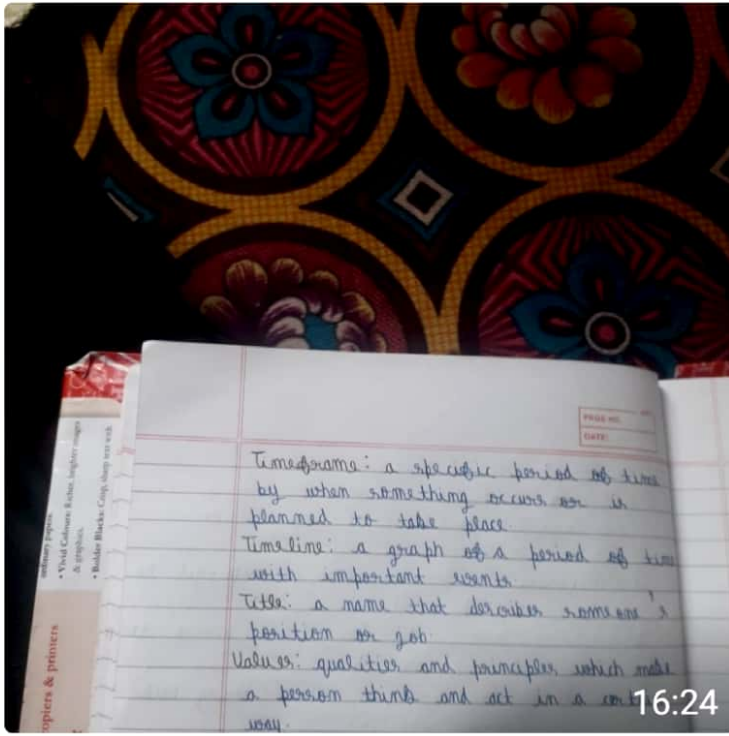 PAGE NO.
DATE:
Timeframe: a specific period of time
by when something occurs or is
planned to take place.
Timeline: a graph of a period of time
with important events
Title: a name that describes someone's
position or job.
Values: qualities and principles which make
a person think and act in a
way.
16:24
ordinary papers.
• Vivid Colours: Richer, brighter images
& graphics.
• Bolder Blacks: Crisp, sharp text with
copiers & printers